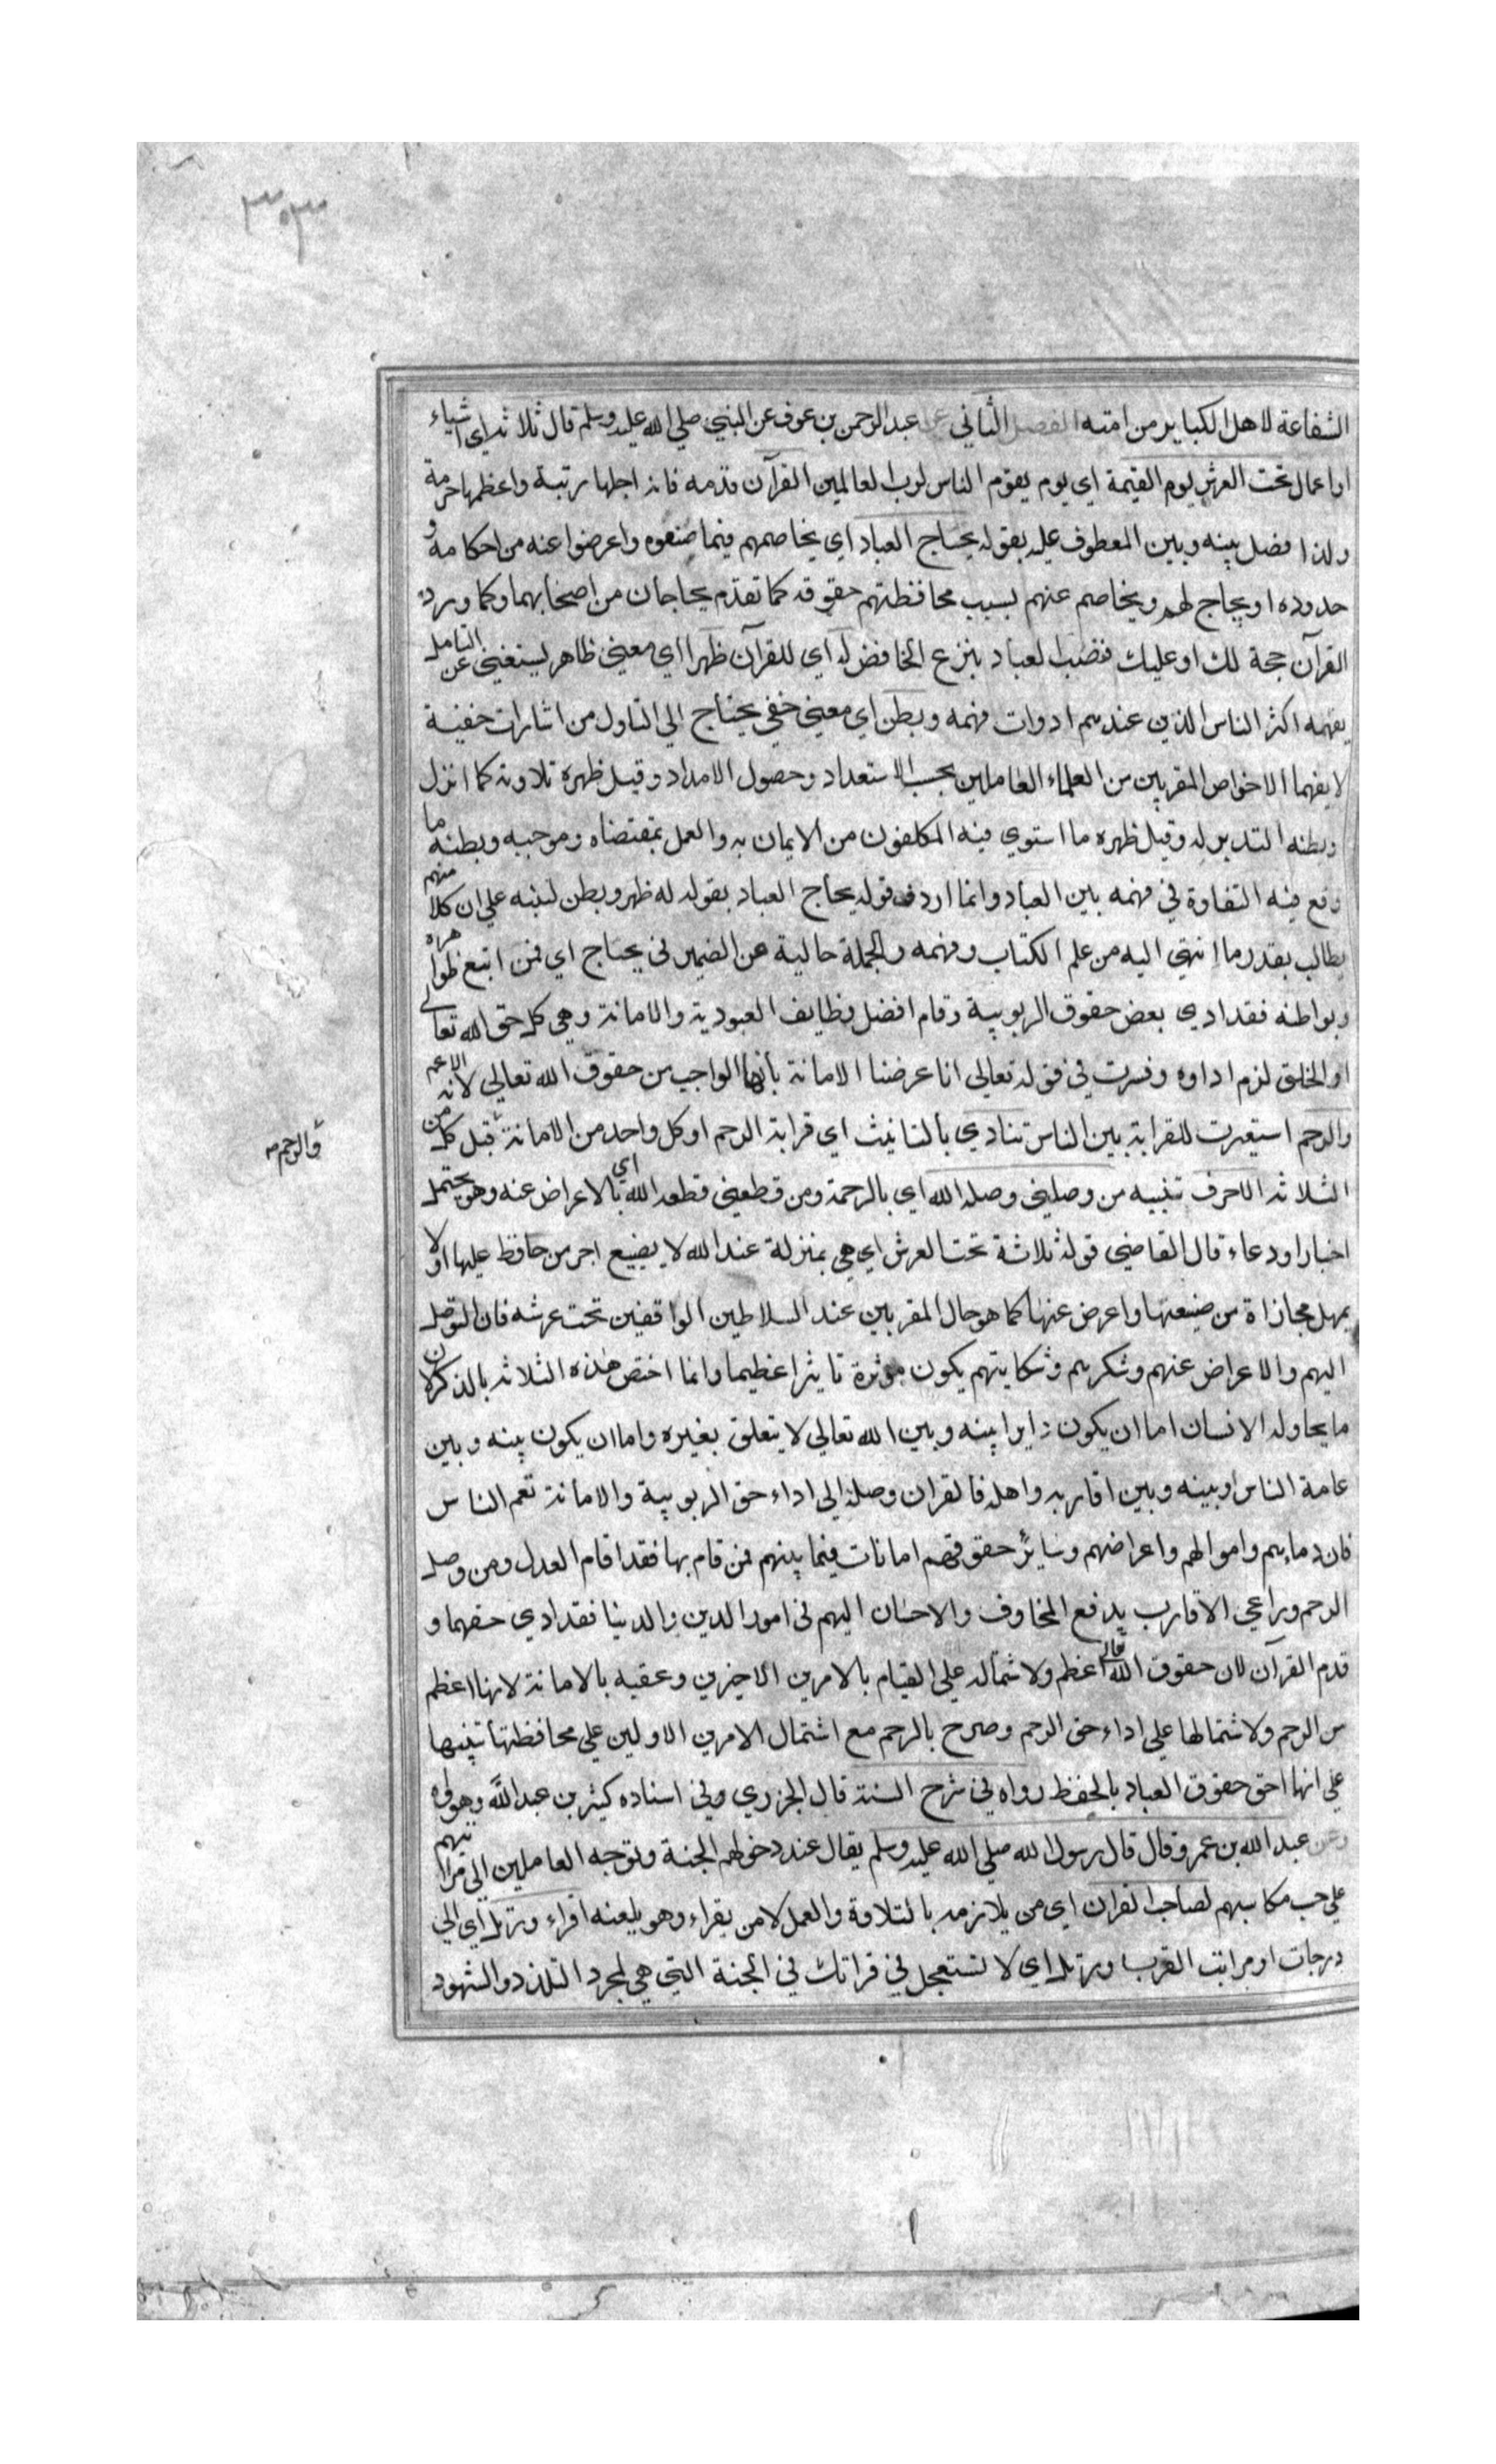 ٣٠٣
الشفاعة لاهل الكباير من امته الفصل الثاني عن عبد الرحمن بن عوف عن النبي صلي الله عليه وسلم قال ثلاثة اي اشياء
او اعمال تحت العرش يوم القيمة اي يوم يقوم الناس لرب العالمين القرآن قدمه فانه اجلها رتبة واعظمها حرمة
ولذا فصل بينه وبين المعطوف عليه بقوله يحتاج العباد اي يخاصمهم فيما ضيعوه واعرضوا عنه من احكامه و
حدوده او يحاج لهم ويخاصم عنهم بسبب محافظتهم حقوقه كما تقدم يحاجان من اصحابهما وكما ورد
القرآن حجة لك او عليك فنصب العباد بنزع الخافض له اي للقرآن ظهر اي معني ظاهر يستغني عن التامل
يفهمه اكثر الناس الذين عندهم ادوات فهمه وبطن اي معني خفي يحتاج الي التاول من اشارات خفية
لا يفهما الا خواص المقربين من العلماء العاملين بحسب الاستعداد وحصول الامداد وقيل ظهره تلاوته كما انزل
وبطنه التدبر له وقيل ظهره ما استوي فيه المكلفون من الايمان به والعمل بمقتضاه وموجبه وبطنه ما
وقع فيه التفاوة في فهمه بين العباد وانما اردف قوله يحاج العباد بقوله له ظهر وبطن لينبه علي ان كلا منهم
يطالب بقدر ما انتهي اليه من علم الكتاب وفهمه والجملة حالية عن الضمير في يحتاج اي فمن اتبع ظواهره
وبواطنه فقد ادي بعض حقوق الربوبية وقام افضل وظايف العبودية والامانة وهي كل حق لله تعالي
او الخلق لزم اداوه وفسرت في قوله تعالي انا عرضنا الامانة بأنها الواجب من حقوق الله تعالي لانه الاعم
والرحم استعيرت للقرابة بين الناس تنادي بالتانيث اي قرابة الرحم او كل واحد من الامانة قبل كل من
والرحم
الثلاثة الاحرف تنبيه من وصلني وصله الله اي بالرحمة ومن قطعني قطعه الله اي بالاعراض عنه وهو يحتمل
اخبارا ودعاء قال القاضي قوله ثلاثة تحت العرش اي هي بمنزلة عند الله لا يضيع اجر من حافظ عليها اولا
يمهل مجازاة من ضيعها واعرض عنها كما هو حال المقربين عند السلاطين الواقفين تحت عرشه فان التوصل
اليهم والاعراض عنهم وشكرهم وشكايتهم يكون موثرة تاثيرا عظيما وانما اختص هذه الثلاثة بالذكر لان
ما يحاوله الانسان اما ان يكون دايرا بينه وبين الله تعالي لا يتعلق بغيره واما ان يكون بينه وبين
عامة الناس او بينه وبين اقاربه واهله فالقران وصلة الي اداء حق الربوبية والامانة تعم الناس
فان دماءهم واموالهم واعراضهم وساير حقوقهم امانات فيما بينهم فمن قام بها فقد اقام العدل ومن وصل
الرحم وراعي الاقارب بدفع المخاوف والاحسان اليهم في امور الدين والدنيا فقد ادي حقهما و
قدم القرآن لان حقوق الله تعالي اعظم ولاشتماله علي القيام بالامرين الاخيرين وعقبه بالامانة لانها اعظم
من الرحم ولاشتمالها علي اداء حق الرحم وصرح بالرحم مع اشتمال الامرين الاولين علي محافظتها تنبيها
علي انها احق حقوق العباد بالحفظ رواه في شرح السنة قال الجزري وفي اسناده كثير بن عبد الله وهو واه
وعن عبد الله بن عمرو قال قال رسول الله صلي الله عليه وسلم يقال عند دخولهم الجنة وتوجه العاملين الي مراتبهم
علي حسب مكاسبهم لصاحب القران اي من يلازمه بالتلاوة والعمل لا من يقراء وهو يلعنه اقراء ورتل اي الي
درجات او مراتب القرب ورتل اي لا تستعجل في قراتك في الجنة التي هي لمجرد التلذذ والشهود